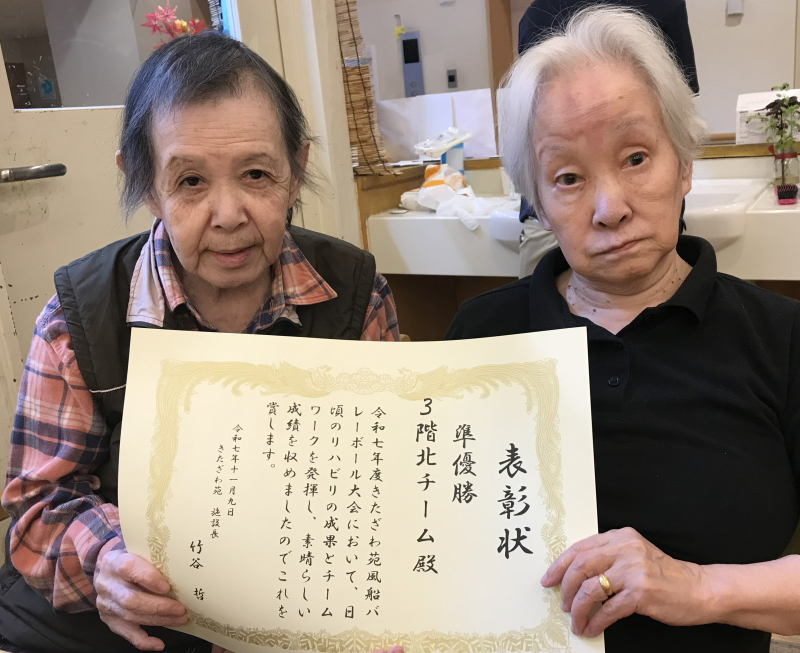 表彰状
準優勝
3階北チーム殿
令和七年度きたざわ苑風船バ
レーボール大会において、日
頃のリハビリの成果とチーム
ワークを発揮し、素晴らしい
成績を収めましたのでこれを
賞します。
令和七年十一月九日
きたざわ苑 施設長
竹谷 哲